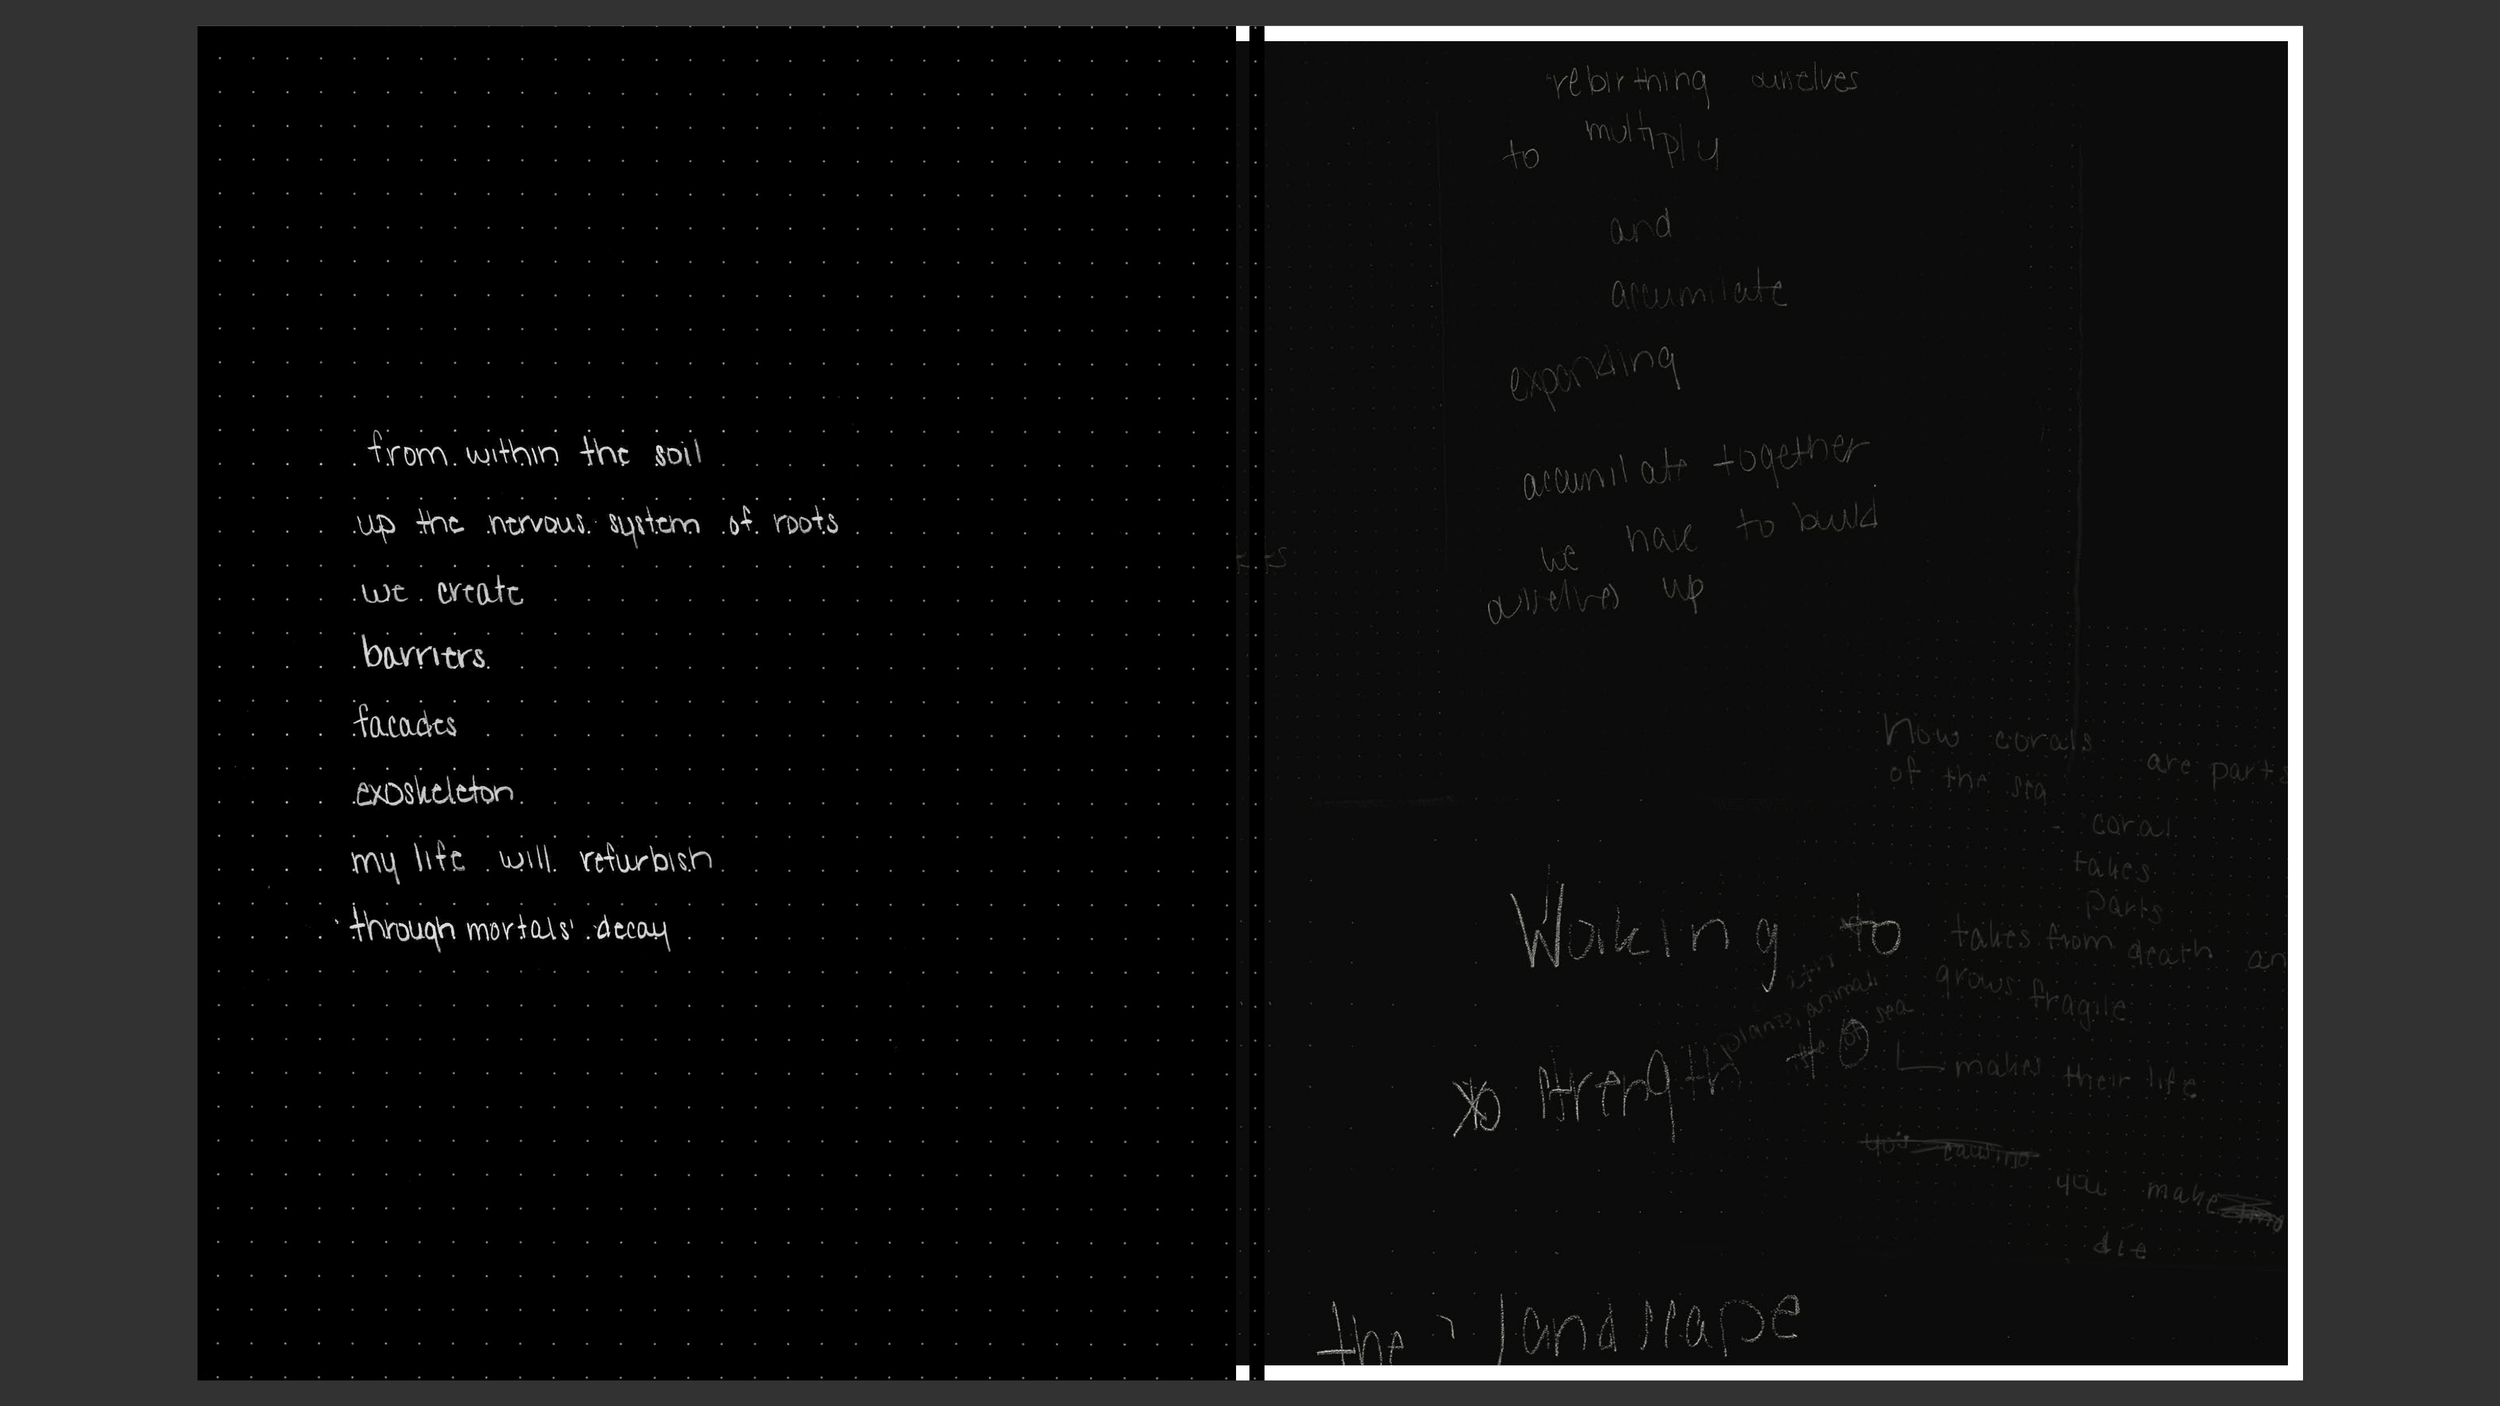 from within the soil
up the nervous system of roots
we create
barriers
facades
exoskeleton
my life will refurbish
through mortals' decay
rebirthing ourselves
to multiply
and
accumilate
expanding
accumilate together
we have to build
ourselves up
How corals are parts
of the sea
- coral
takes
parts
takes from death an
grows fragile
makes their life
you make
die
Working to
plants, animals
the of sea
strength to
the landscape